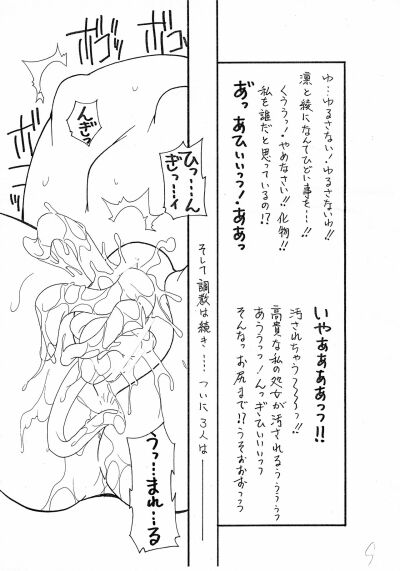 ゆ…ゆるさない!ゆるさないわ!!
凛と綾になんてひどい事を…!!
くううっ!やめなさい!!化物!!
私を誰だと思っているの!?
あ゙っ あひぃぃっっ!ああっ
いやぁぁぁぁっっ!!
汚されちゃう〜〜〜っ!!
高貴な私の処女が汚されるぅぅぅっっ
あううっっ!んっギっひぃぃぃっっ
そんなっお尻まで!?うそぉおすっっ
そして調教は続き…… ついに3人は―
ボコッ
ボコッ
んぎっ
ひっ……ん
ぎっ…イ
うっ…まれ…る